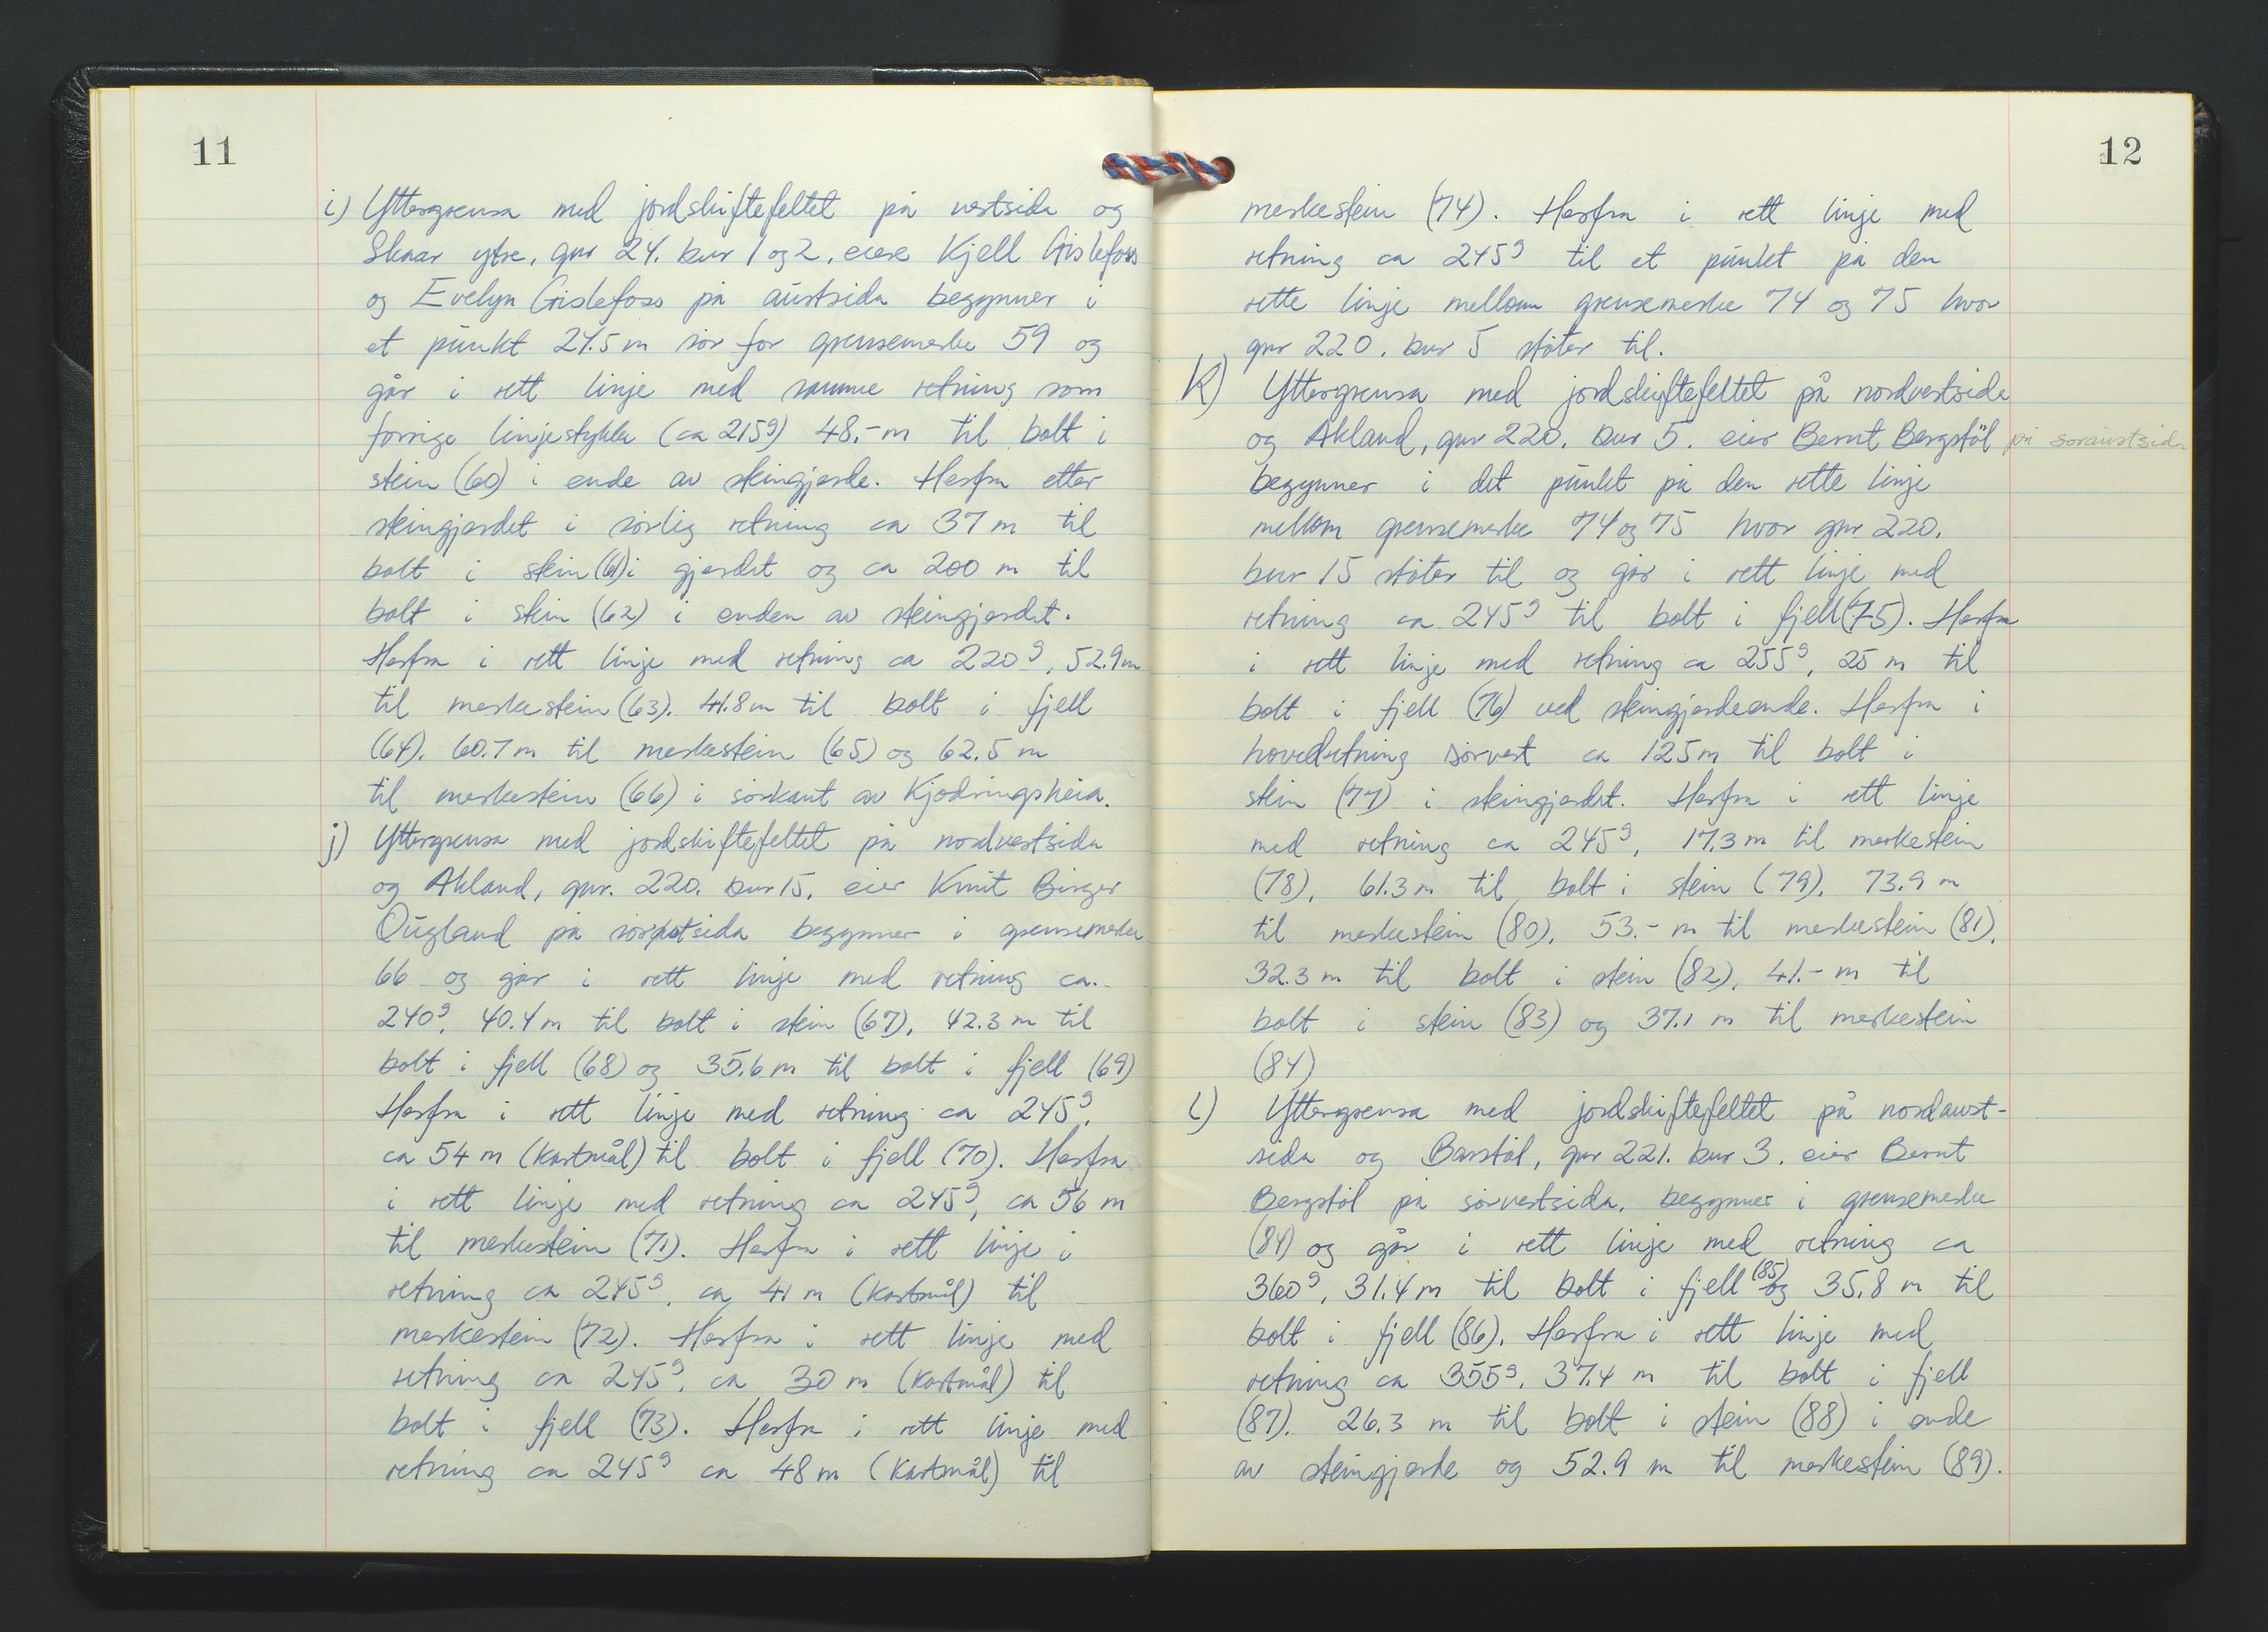 11
i) Yttergrensa med jordskiftefeltet på vestsida og
Skaar ytre, gnr 24. bnr 1 og 2, eiere Kjell Gislefoss
og Evelyn Gislefoss på austsida begynner i
et punkt 24.5 m sør for grensemerke 59 og
går i rett linje med samme retning som
forrige linjestykke (ca 215g) 48,- m til bolt i
stein (60) i ende av steingjerde. Herfra etter
steingjerdet i sørlig retning ca 37 m til
bolt i stein (61) i gjerdet og ca 200 m til
bolt i stein (62) i enden av steingjerdet.
Herfra i rett linje med retning ca 220g, 52.9 m
til merkestein (63). 41.8 m til bolt i fjell
(64). 60.7 m til merkestein (65) og 62.5 m
til merkestein (66) i sørkant av Kjødningsheia.
j) Yttergrensa med jordskiftefeltet på nordvestsida
og Akland, gnr. 220. bnr 15, eier Knut Birger
Ougland på søraustsida begynner i grensemerke
66 og går i rett linje med retning ca.
240g, 40.4 m til bolt i stein (67), 42.3 m til
bolt i fjell (68) og 35.6 m til bolt i fjell (69)
Herfra i rett linje med retning ca 245g,
ca 54 m (kartmål) til bolt i fjell (70). Herfra
i rett linje med retning ca 245g, ca 56 m
til merkestein (71). Herfra i rett linje i
retning ca 245g, ca 41 m (kartmål) til
merkestein (72). Herfra i rett linje med
retning ca 245g, ca 30 m (kartmål) til
bolt i fjell (73). Herfra i rett linje med
retning ca 245g ca 48 m (kartmål) til
12
merkestein (74). Herfra i rett linje med
retning ca 245g til et punkt på den
rette linje mellom grensemerke 74 og 75 hvor
gnr 220. bnr 5 støter til.
k) Yttergrensa med jordskiftefeltet på nordvestsida
og Akland, gnr 220. bnr 5. eier Bernt Bergstøl på søraustsida
begynner i det punkt på den rette linje
mellom grensemerke 74 og 75 hvor gnr 220.
bnr 15 støter til og går i rett linje med
retning ca 245g til bolt i fjell (75). Herfra
i rett linje med retning ca 255g, 25 m til
bolt i fjell (76) ved steingjerdeende. Herfra i
hovedretning sørvest ca 125 m til bolt i
stein (77) i steingjerdet. Herfra i rett linje
med retning ca 245g, 17.3 m til merkestein
(78), 61.3 m til bolt i stein (79). 73.9 m
til merkestein (80), 53.- m til merkestein (81),
32.3 m til bolt i stein (82), 41.- m til
bolt i stein (83) og 37.1 m til merkestein
(84)
l) Yttergrensa med jordskiftefeltet på nordaust-
sida og Barstøl, gnr 221. bnr 3. eier Bernt
Bergstøl på sørvestsida, begynner i grensemerke
(84) og går i rett linje med retning ca
360g, 31.4 m til bolt i fjell (85) og 35.8 m til
bolt i fjell (86). Herfra i rett linje med
retning ca 355g, 37.4 m til bolt i fjell
(87). 26.3 m til bolt i stein (88) i ende
av steingjerde og 52.9 m til merkestein (89).